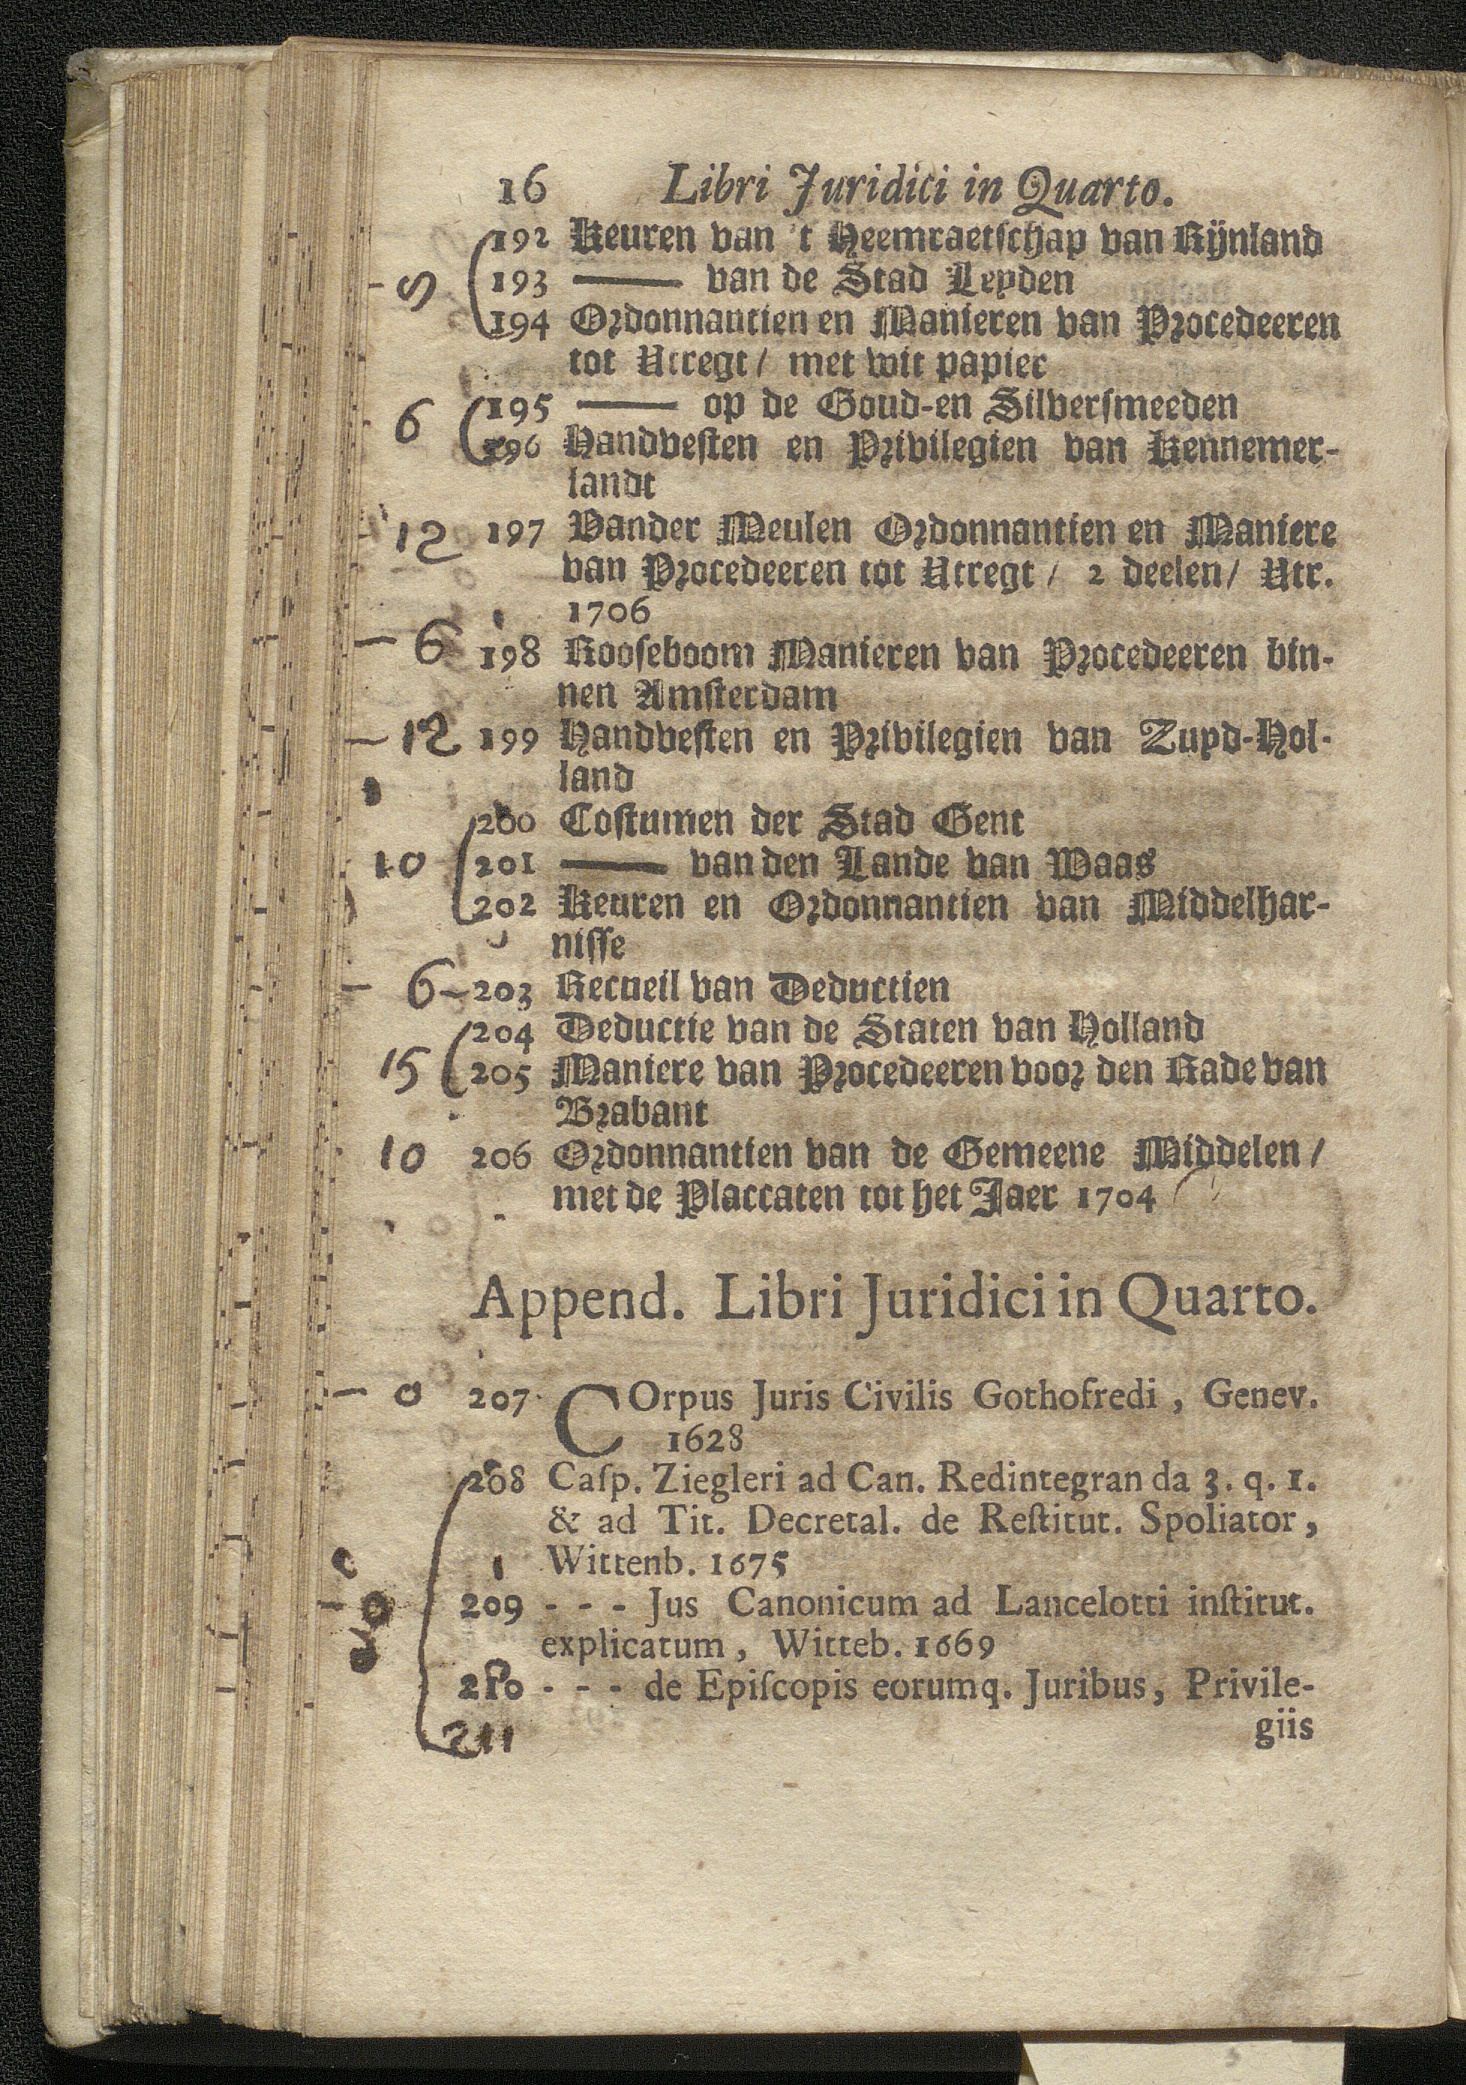 16 Libri Juridici in Quarto.
192 Keuren van 't Heemraetschap van Rijnland
193 —— van de Stad Leyden
194 Ordonnantien en Manieren van Procedeeren
tot Utregt / met wit papier
195 —— op de Goud-en Silversmeeden
6 196 Handvesten en Privilegien van Kennemer-
landt
12 197 Vander Meulen Ordonnantien en Maniere
van Procedeeren tot Utregt / 2 deelen / Utr.
1706
– 6 198 Rooseboom Manieren van Procedeeren bin-
nen Amsterdam
– 12 199 Handvesten en Privilegien van Zuyd-Hol-
land
200 Costumen der Stad Gent
10 201 —— van den Lande van Waas
202 Keuren en Ordonnantien van Middelhar-
nisse
– 6 – 203 Recueil van Deductien
204 Deductie van de Staten van Holland
15 205 Maniere van Procedeeren voor den Rade van
Brabant
10 206 Ordonnantien van de Gemeene Middelen /
met de Placcaten tot het Jaer 1704
Append. Libri Juridici in Quarto.
– 0 207 COrpus Juris Civilis Gothofredi, Genev.
1628
208 Casp. Ziegleri ad Can. Redintegranda 3. q. 1.
& ad Tit. Decretal. de Restitut. Spoliator,
Wittenb. 1675
209 - - - Jus Canonicum ad Lancelotti institut.
explicatum, Witteb. 1669
210 - - - de Episcopis eorumq. Juribus, Privile-
211 giis